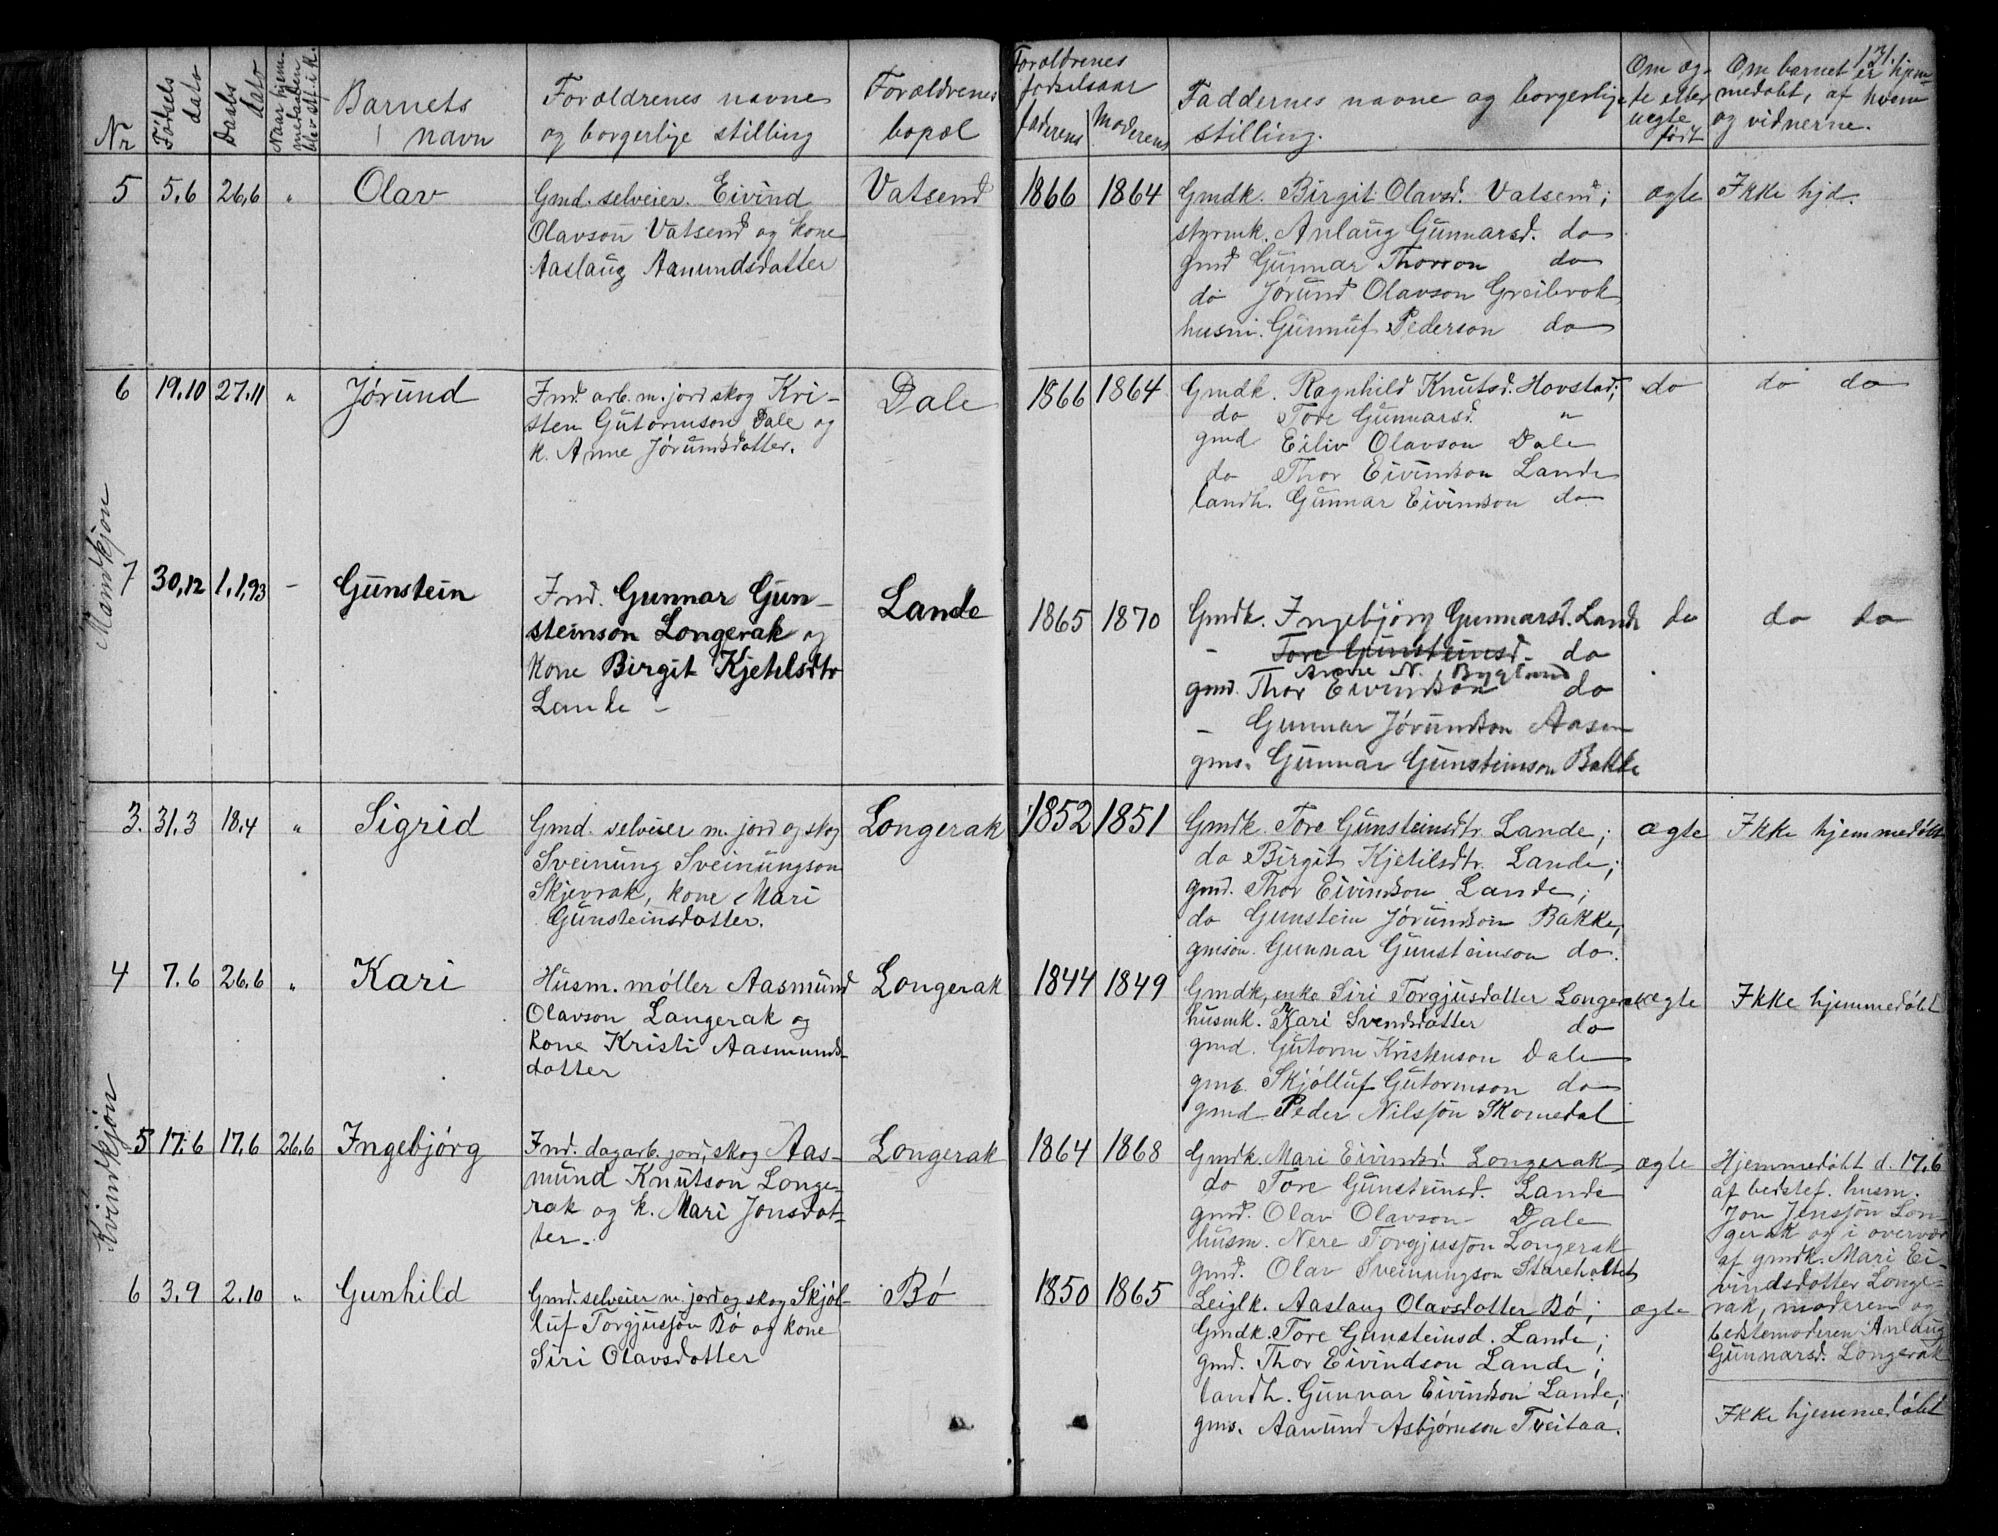 131.
Nr
Fødsels dato
Daabs dato
Naar hjemmedaaben blev stf. i k.
Barnets navn
Forældrenes navne og borgerlige stilling
Forældrenes bopæl
Forældrenes fødselsaar
faderens
Moderens
Faddernes navne og borgerlige stilling.
Om ægte eller uegte født
Om barnet er hjemmedøbt, af hvem og vidnerne.
Mandkjøn
5 5.6 26.6 " Olav
Gmd. selveier. Eivind
Olavson Vatsend og kone
Aaslaug Aanundsdatter
Vatsend
1866 1864
Gmdk. Birgit Olavsd. Vatsend;
styrmk. Anlaug Gunnarsd. do
gmd Gunnar Thorson do
do Jørund Olavson Greibrok
husm. Gunnuf Pederson do
ægte
Ikke hjd.
6 19.10 27.11 " Jørund
Ind. arb. m. jord skog Kri-
sten Gutormson Dale og
k. Anne Jørundsdatter.
Dale
1866 1864
Gmdk. Ragnhild Knutsd. Hovstad;
do Tore Gunnarsd. "
gmd Eiliv Olavson Dale
do Thor Eivindson Lande
landh. Gunnar Eivindson do
do
do do
7 30,12 1,1,93 - Gunstein
Ind. Gunnar Gun-
steinson Longerak og
kone Birgit Kjetilsdtr
Lande -
Lande
1865 1870
Gmdk. Ingebjørg Gunnarsd. Lande
- Tore Gunsteinsd. do
Anne N. Bygland
gmd. Thor Eivindson do
- Gunnar Jørundson Aasen
gms. Gunnar Gunsteinson Bakke
do
do do
Kvindkjøn
3. 31.3 18.4 " Sigrid
Gmd. selveier m. jord og skog
Sveinung Sveinungson
Skjevrak, kone Mari
Gunsteinsdatter.
Longerak
1852 1851
Gmdk. Tore Gunsteinsdtr. Lande;
do Birgit Kjetilsdtr. Lande;
gmd. Thor Eivindson Lande;
do Gunstein Jørundson Bakke,
gmsøn. Gunnar Gunsteinson do.
ægte
Ikke hjemmedøbt
4 7.6 26.6 " Kari
Husm. møller Aasmund
Olavson Langerak og
kone Kristi Aasmunds-
datter
Longerak
1844 1849
Gmdk, enke Siri Torgjusdatter Longerak
husmk. Kari Svendsdatter do
gmd. Gutorm Kristenson Dale
gms. Skjølluf Gutormson do
gmd Peder Nilssøn Skomedal
ægte
Ikke hjemmedøbt
5 17.6 17.6 26.6 Ingebjørg
Ind. dagarb. jord, skog Aas-
mund Knutson Longe-
rak og k. Mari Jonsdat-
ter.
Longerak
1864 1868
Gmdk. Mari Eivindsd. Longerak
do Tore Gunsteinsd. Lande
gmd. Olav Olavson Dale
husm. Nere Torgjussøn Longerak
gmd. Olav Sveinungson Stareholtet
ægte
Hjemmedøbt d. 17.6
af bedstef. husm.
Jon Jenssøn Lon-
gerak og i overvær
af gmdk. Mari Ei-
vindsdatter Longe-
rak, moderen og
bedstemoderen Anlaug
Gunnarsd. Longerak
6 3.9 2.10 " Gunhild
Gmd. selveier m. jord og skog Skjøl-
luf Torgjussøn Bø og kone
Siri Olavsdatter
Bø
1850 1865
Leiglk. Aaslaug Olavsdatter Bø;
Gmdk. Tore Gunsteinsd. Lande;
gmd. Thor Eivindson Lande;
landh. Gunnar Eivindson Lande;
gms. Aanund Asbjørnson Tveitaa.
ægte
Ikke hjemmedøbt